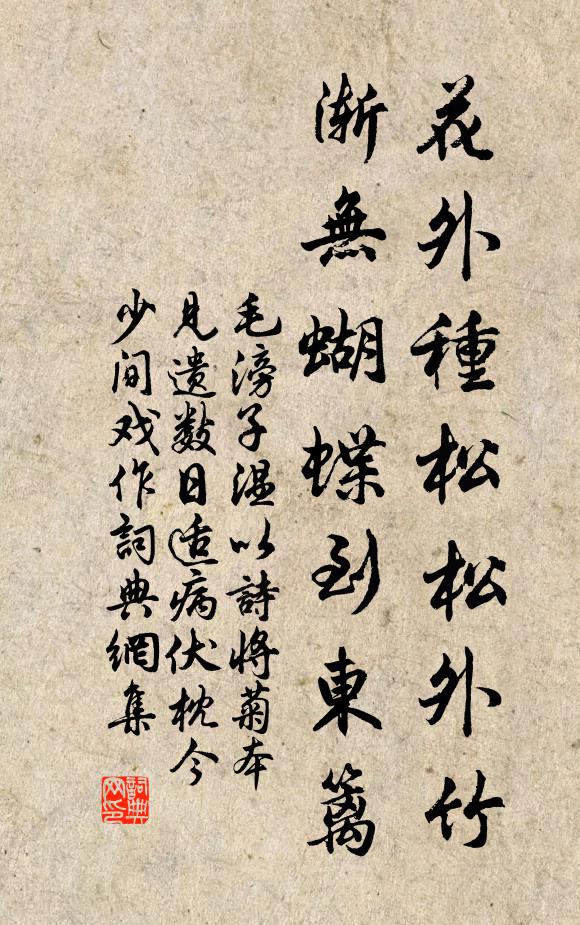 花外種松松外竹
漸無蝴蝶到東籬
毛滂子温以詩將菊本
見遗数日适病伏枕今
少间戏作詞典網集
詞典网印